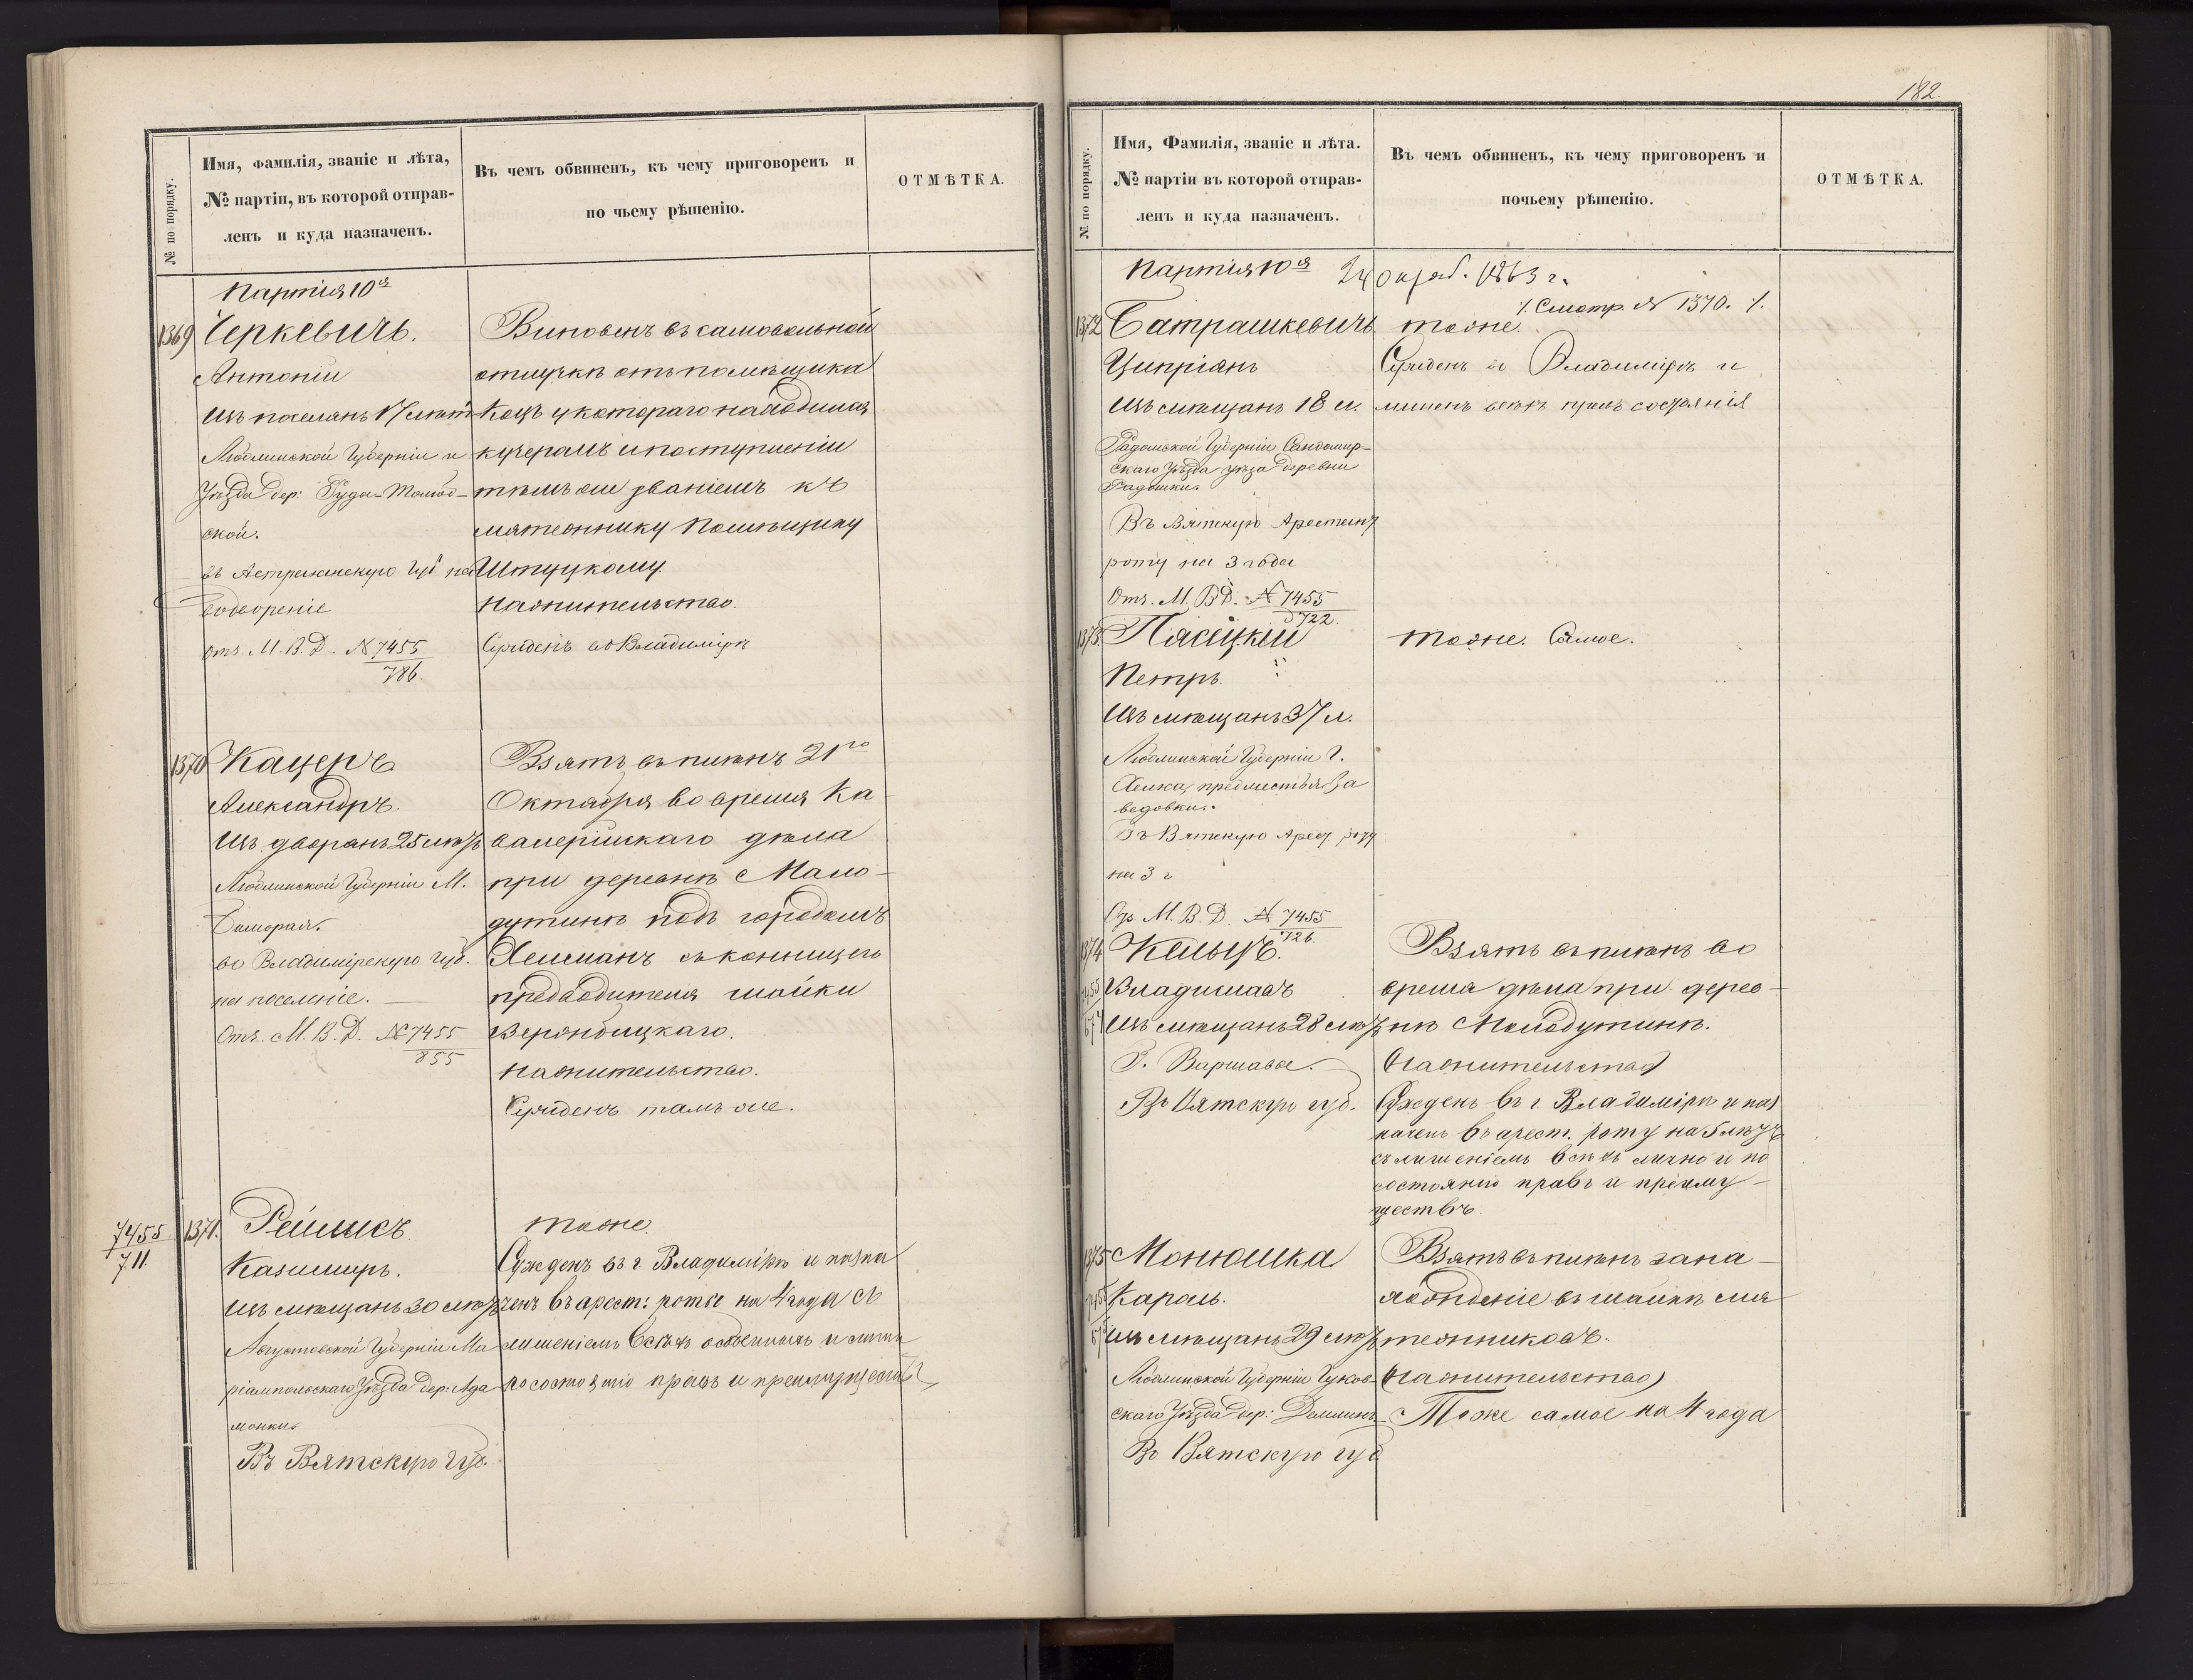 № по порядку.
Имя, Фамилія, званіе и лѣта,
№ партіи, въ которой отправ-
ленъ и куда назначенъ.
Въ чемъ обвиненъ, къ чему приговоренъ и
по чьему рѣшенію.
ОТМѢТКА.
Партія 10я
1369 Черкевичъ.
Антоній
Изъ поселянъ 17 лѣтъ
Люблинской Губерніи и
Уѣзда дер:
ской.
въ Астраханскую губ на
водвореніе
отъ М.В.Д. № 7455
786.
Виновенъ въ самовольной
отлучкѣ отъ помѣщика
у котораго находился
кучеромъ и поступленіи
тѣмъ же званіемъ къ
мятежнику помѣщику
На жительство.
Сужденъ во Владимірѣ
1370 Кацеръ
Александръ.
Изъ дворянъ 25 лѣтъ
Люблинской Губерніи М.
во Владимірскую губ.
на поселеніе.
Отъ М.В.Д. № 7455
855
Взятъ въ плѣнъ 21го
Октября во время Ка-
валерійскаго дѣла
при деревнѣ Мало-
дутинѣ подъ городомъ
предводителя шайки
На жительство.
Сужденъ тамъ же.
7455
711
1371.
Казимиръ.
Изъ мѣщанъ 30 лѣтъ
Августовской Губерніи Ма
ріампольскаго Уѣзда дер: Ада
монки
Въ Вятскую губ.
тоже.
Сужденъ въ г. Владимірѣ и назна
ченъ въ арест: роты на 4 года съ
лишеніемъ всѣхъ особенныхъ и личн
по состоянію правъ и преимуществъ
182.
№ по порядку.
Имя, Фамилія, званіе и лѣта.
№ партіи въ которой отправ-
ленъ и куда назначенъ.
Въ чемъ обвиненъ, къ чему приговоренъ и
почьему рѣшенію.
ОТМѢТКА.
Партія 10я 24 октяб. 1863 г.
1372 Батрашкевичъ
Ципріанъ
Изъ мѣщанъ 18 л.
Радомской Губерніи Сандомир-
скаго Уѣзда деревни
Въ Вятскую Арестант
роту на 3 года
Отъ. М.В.Д. № 7455
722.
Смотр. № 1370.
тоже.
Сужденъ во Владимірѣ и
лишенъ всѣхъ правъ состоянія
1373. Пясецкій
Петръ.
Изъ мѣщанъ 37 л.
Люблинской Губерніи Г.
Хелма, предмѣстья За
Въ Вятскую Арест роту
на 3 г
От. М.В.Д. № 7455
726.
тоже. Самое.
1374
Владиславъ
Изъ мѣщанъ 28 лѣтъ
Г. Варшава.
Въ Вятскую губ.
Взятъ въ плѣнъ во
время дѣла при дерев-
нѣ Молодутинѣ.
(На жительство)
Сужденъ въ г. Владимірѣ и наз
наченъ въ арест. роту на 5 лѣтъ
съ лишеніемъ всѣхъ лично и по
состоянію правъ и преиму-
ществъ.
1375 Монюшка
Кароль.
изъ мѣщанъ 29 лѣтъ
Люблинской Губерніи
скаго Уѣзда дер:
Въ Вятскую губ
Взятъ въ плѣнъ за на-
хожденіе въ шайкѣ мя
тежниковъ.
(На жительство)
Тоже самое на 4 года